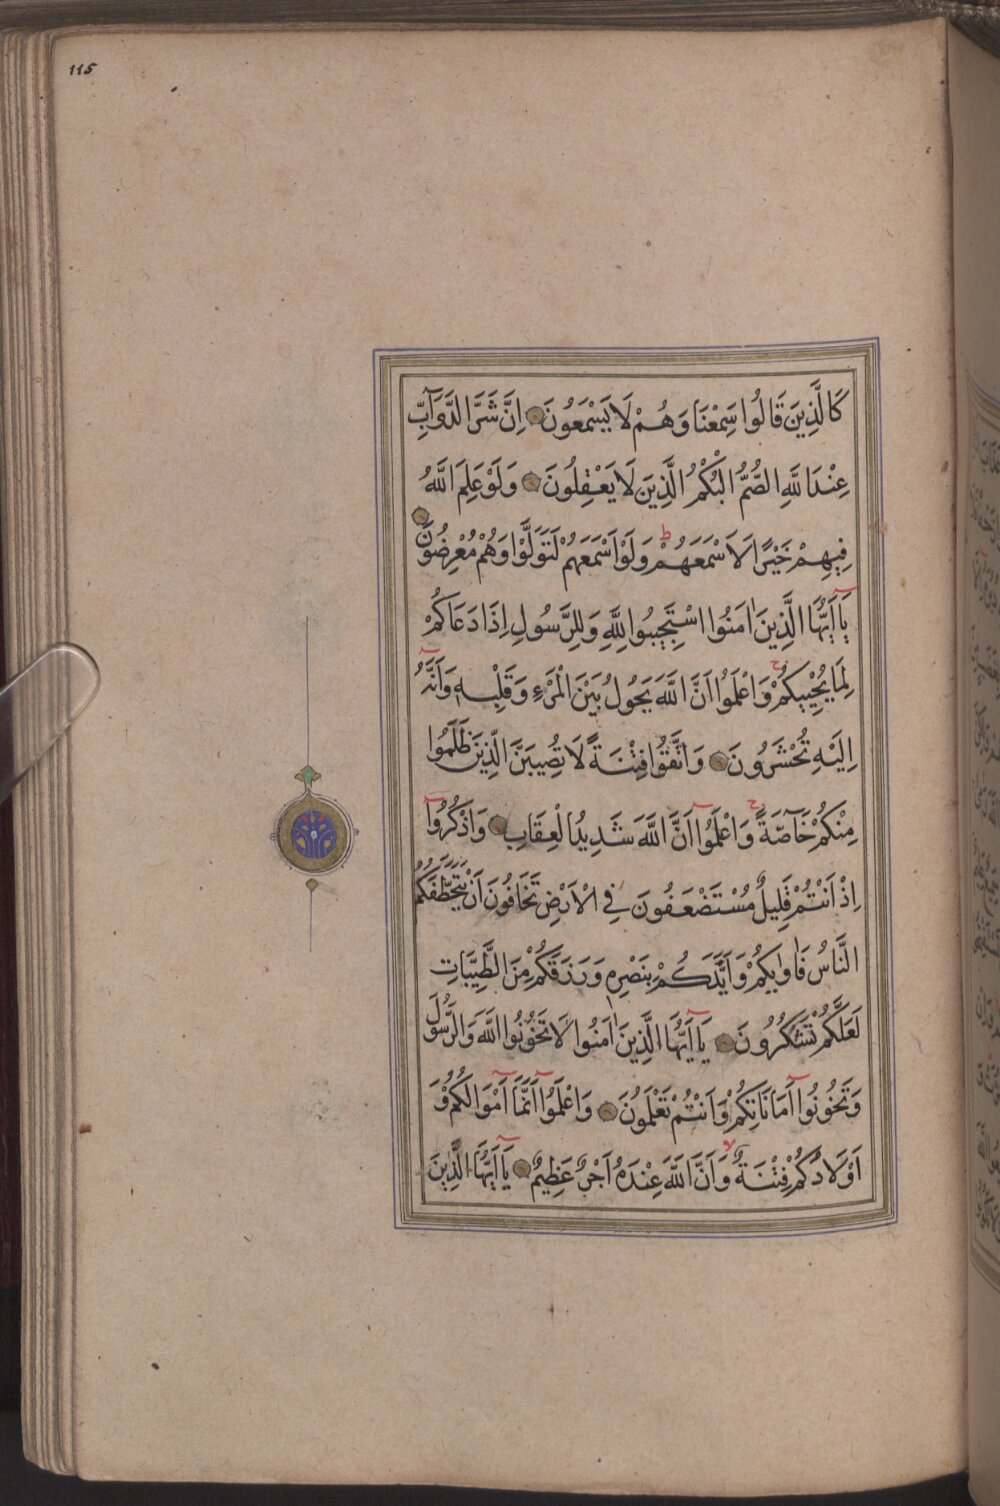 115
كَالَّذِينَ قَالُوا سَمِعْنَا وَهُمْ لَا يَسْمَعُونَ اِنَّ شَرَّ الدَّوَآبِّ
عِنْدَ اللَّهِ الصُّمُّ الْبُكْمُ الَّذِينَ لَا يَعْقِلُونَ وَلَوْ عَلِمَ اللَّهُ
فِيهِمْ خَيْرًا لَاَسْمَعَهُمْ ط وَلَوْ اَسْمَعَهُمْ لَتَوَلَّوْا وَهُمْ مُعْرِضُونَ
يَآ اَيُّهَا الَّذِينَ اٰمَنُوا اسْتَجِيبُوا لِلَّهِ وَلِلرَّسُولِ اِذَا دَعَاكُمْ
لِمَا يُحْيِيكُمْ ج وَاعْلَمُوا اَنَّ اللَّهَ يَحُولُ بَيْنَ الْمَرْءِ وَقَلْبِهِ وَاَنَّهُٓ
اِلَيْهِ تُحْشَرُونَ وَاتَّقُوا فِتْنَةً لَا تُصِيبَنَّ الَّذِينَ ظَلَمُوا
مِنْكُمْ خَآصَّةً ج وَاعْلَمُوٓا اَنَّ اللَّهَ شَدِيدُ الْعِقَابِ وَاذْكُرُوٓا
اِذْ اَنْتُمْ قَلِيلٌ مُسْتَضْعَفُونَ فِي الْاَرْضِ تَخَافُونَ اَنْ يَتَخَطَّفَكُمُ
النَّاسُ فَاٰوٰيكُمْ وَاَيَّدَكُمْ بِنَصْرِهِ وَرَزَقَكُمْ مِنَ الطَّيِّبَاتِ
لَعَلَّكُمْ تَشْكُرُونَ يَآ اَيُّهَا الَّذِينَ اٰمَنُوا لَا تَخُونُوا اللَّهَ وَالرَّسُولَ
وَتَخُونُوٓا اَمَانَاتِكُمْ وَاَنْتُمْ تَعْلَمُونَ وَاعْلَمُوٓا اَنَّمَآ اَمْوَالُكُمْ وَ
اَوْلَادُكُمْ فِتْنَةٌ لا وَاَنَّ اللَّهَ عِنْدَهُ اَجْرٌ عَظِيمٌ يَآ اَيُّهَا الَّذِينَ